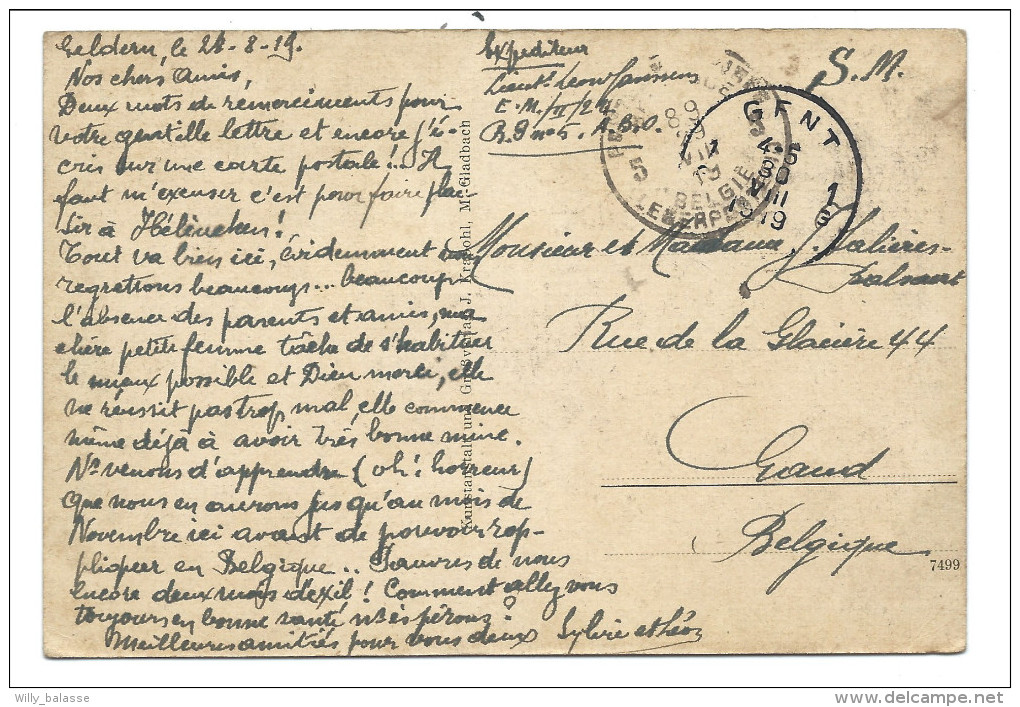 Geldern, le 28-8-19.
Nos chers Amis,
Deux mots de remerciments pour
votre gentille lettre et encore j'é-
cris sur une carte postale! Il
faut m'excuser c'est pour faire plai-
sir à Hélènchen!
Tout va bien ici, évidemment nous
regrettons beaucoup... beaucoup
l'absence des parents et amis, ma
chère petite femme tâche de s'habituer
le mieux possible et Dieu merci, elle
ne réussit pas trop mal elle commence
même déjà à avoir très bonne mine.
Ns venons d'apprendre (oh! horreur)
que nous en aurons jusqu'au mois de
Novembre ici avant de pouvoir rap-
pliquer en Belgique.. Pauvres de nous
encore deux mois d'exil! Comment allez vous
toujours en bonne santé ns espérons?
Meilleures amitiés pour vous deux
Expéditeur
Lieutt Janssens
E.M./II/2
B.P n° 5. A.B.O.
S.M.
GENT 1
4-5
30
VIII
1919
5
BELGIE
Monsieur et Madame
Rue de la Glacière 44
Gand
Belgique
Kunstanstalt und Großverlag J. Krapohl, M.-Gladbach
7499
Willy_balasse
delcampe.net